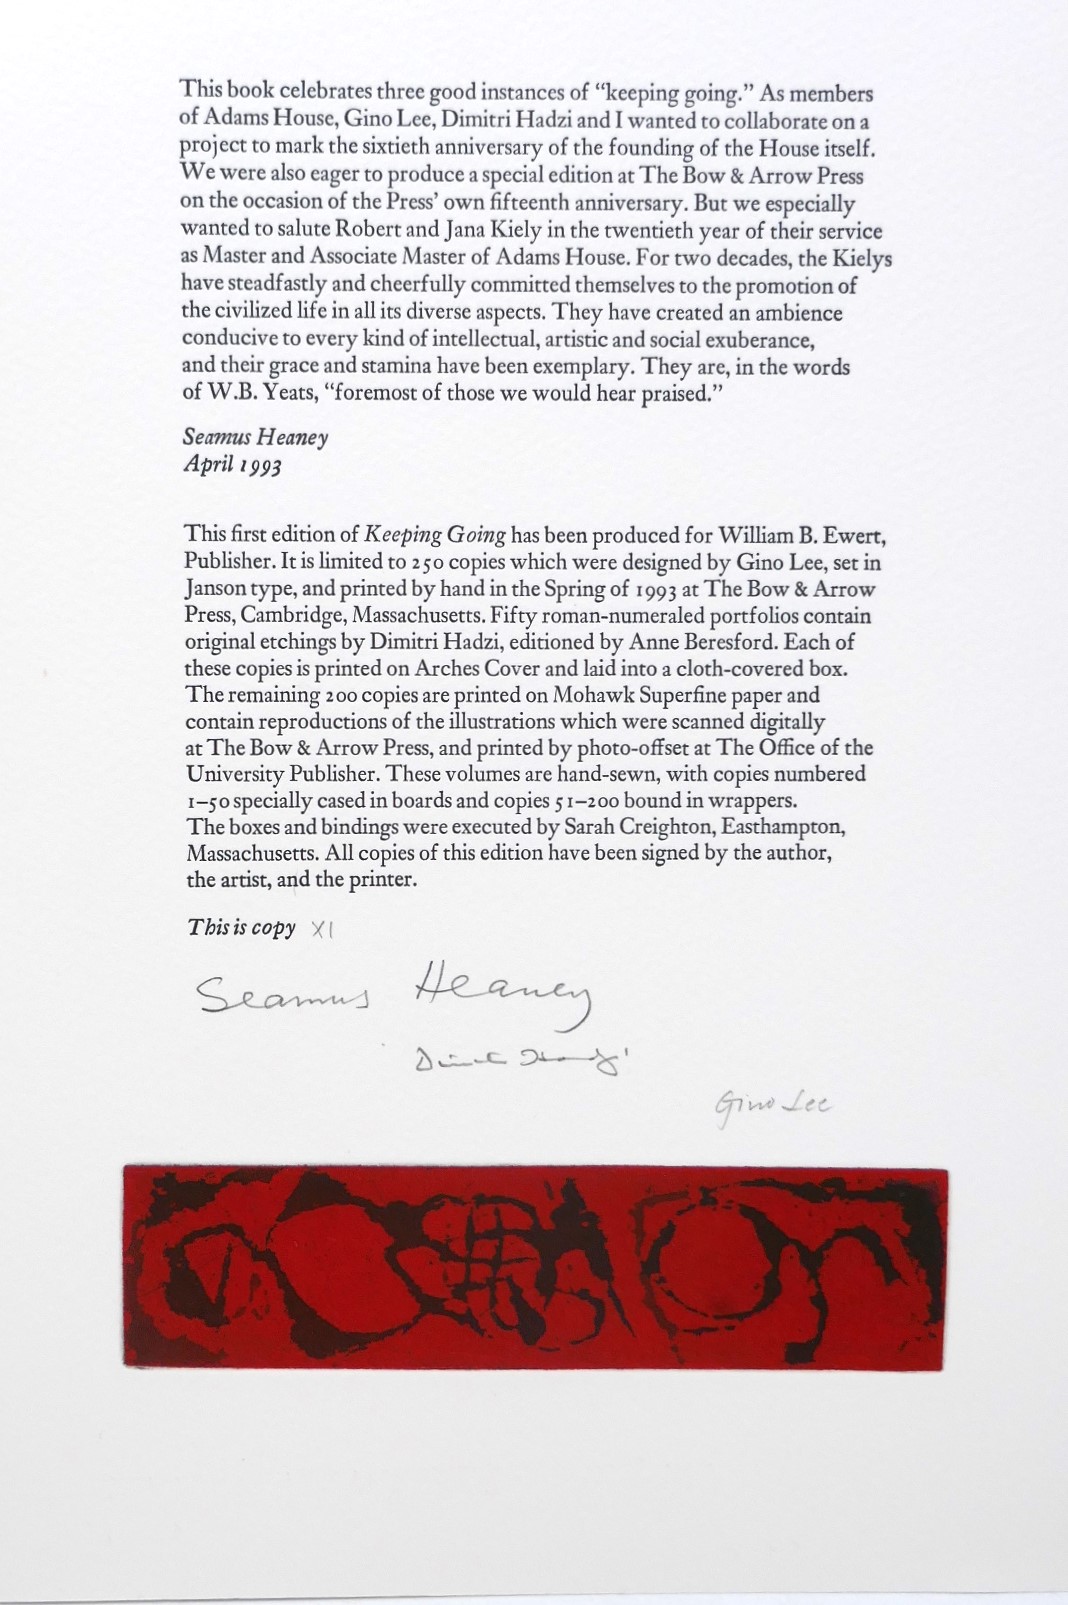 This book celebrates three good instances of “keeping going.” As members
of Adams House, Gino Lee, Dimitri Hadzi and I wanted to collaborate on a
project to mark the sixtieth anniversary of the founding of the House itself.
We were also eager to produce a special edition at The Bow & Arrow Press
on the occasion of the Press’ own fifteenth anniversary. But we especially
wanted to salute Robert and Jana Kiely in the twentieth year of their service
as Master and Associate Master of Adams House. For two decades, the Kielys
have steadfastly and cheerfully committed themselves to the promotion of
the civilized life in all its diverse aspects. They have created an ambience
conducive to every kind of intellectual, artistic and social exuberance,
and their grace and stamina have been exemplary. They are, in the words
of W.B. Yeats, “foremost of those we would hear praised.”
Seamus Heaney
April 1993
This first edition of Keeping Going has been produced for William B. Ewert,
Publisher. It is limited to 250 copies which were designed by Gino Lee, set in
Janson type, and printed by hand in the Spring of 1993 at The Bow & Arrow
Press, Cambridge, Massachusetts. Fifty roman-numeraled portfolios contain
original etchings by Dimitri Hadzi, editioned by Anne Beresford. Each of
these copies is printed on Arches Cover and laid into a cloth-covered box.
The remaining 200 copies are printed on Mohawk Superfine paper and
contain reproductions of the illustrations which were scanned digitally
at The Bow & Arrow Press, and printed by photo-offset at The Office of the
University Publisher. These volumes are hand-sewn, with copies numbered
1–50 specially cased in boards and copies 51–200 bound in wrappers.
The boxes and bindings were executed by Sarah Creighton, Easthampton,
Massachusetts. All copies of this edition have been signed by the author,
the artist, and the printer.
This is copy XI
Seamus Heaney
Dimitri Hadzi
Gino Lee